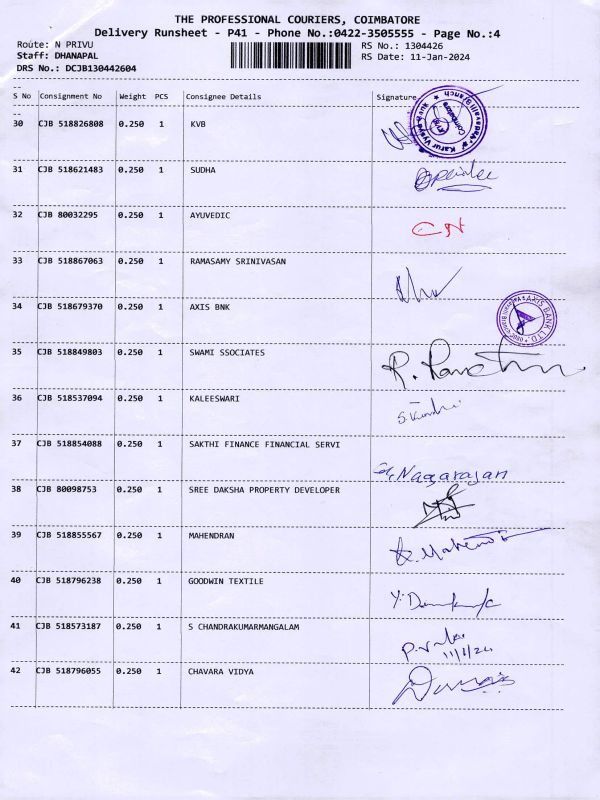 THE PROFESSIONAL COURIERS, COIMBATORE
Delivery Runsheet - P41 - Phone No.:0422-3505555 - Page No.:4
Route: N PRIVU RS No.: 1304426
Staff: DHANAPAL RS Date: 11-Jan-2024
DRS No.: DCJB130442604
S No Consignment No Weight PCS Consignee Details Signature
30 CJB 518826808 0.250 1 KVB
31 CJB 518621483 0.250 1 SUDHA
32 CJB 80032295 0.250 1 AYUVEDIC
CN
33 CJB 518867063 0.250 1 RAMASAMY SRINIVASAN
34 CJB 518679370 0.250 1 AXIS BNK
AXIS BANK LTD.
35 CJB 518849803 0.250 1 SWAMI SSOCIATES
36 CJB 518537094 0.250 1 KALEESWARI
37 CJB 518854088 0.250 1 SAKTHI FINANCE FINANCIAL SERVI
Nagarajan
38 CJB 80098753 0.250 1 SREE DAKSHA PROPERTY DEVELOPER
39 CJB 518855567 0.250 1 MAHENDRAN
40 CJB 518796238 0.250 1 GOODWIN TEXTILE
41 CJB 518573187 0.250 1 S CHANDRAKUMARMANGALAM
11/1/24
42 CJB 518796055 0.250 1 CHAVARA VIDYA